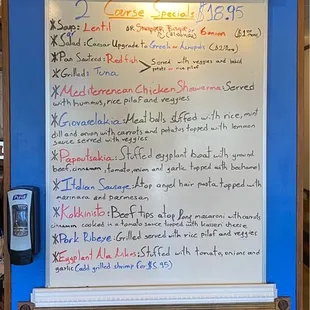 2 Course Specials $18.95
*Soup: Lentil OR
*Salad: Caesar Upgrade to Greek or
*Pan Sauteed: Redfish Served with veggies and
*Grilled: Tuna
*Mediterranean Chicken Shawerma: Served
with hummus, rice pilaf and veggies
*Giovarelakia: Meatballs stuffed with rice, mint
dill and onion with carrots and potatos topped with lemon
sauce served with veggies
*Papoutsakia: Stuffed eggplant boat with ground
beef, cinnamon, tomato, onion and garlic topped with bechamel
*Italian Sausage: Atop angel hair pasta topped with
marinara and parmesan
*Kokkinisto: Beef tips atop long macaroni with carrots
cinnamon cooked in a tomato sauce topped with kasseri cheese
*Pork Ribeye: Grilled served with rice pilaf and veggies
*Eggplant Ala Nikos: Stuffed with tomato, onions and
garlic (add grilled shrimp for $5.95)
PURELL